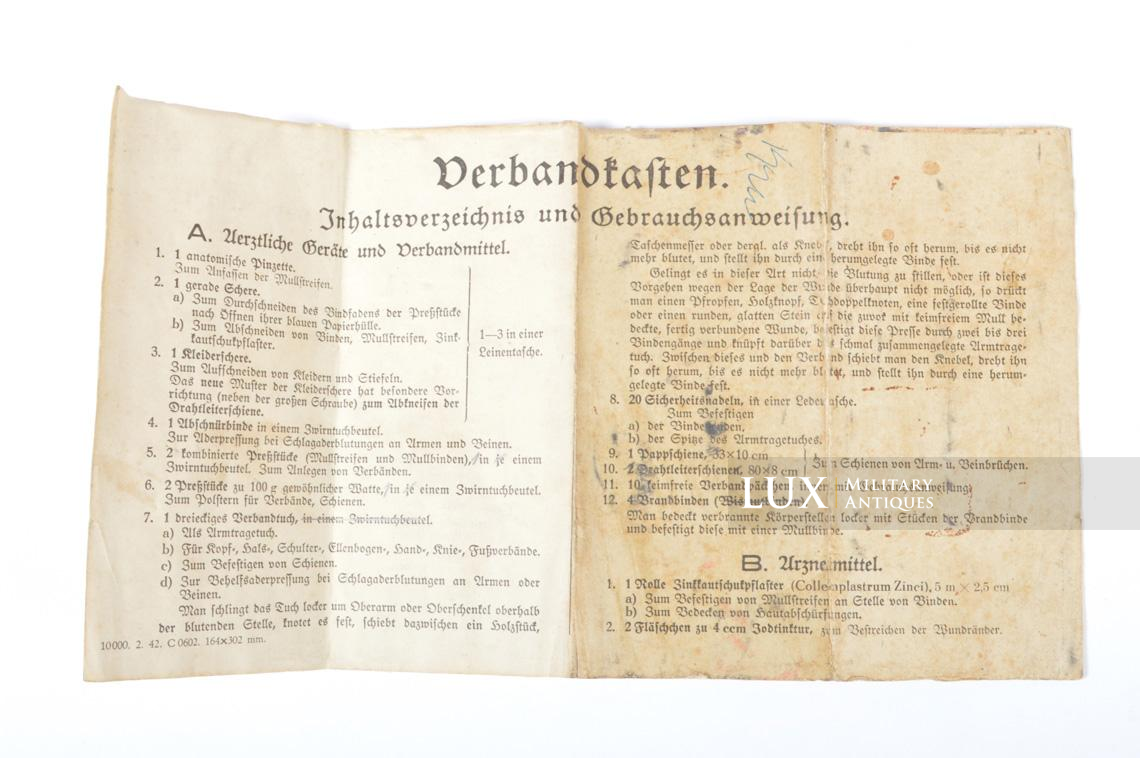 Verbandkasten.
Inhaltsverzeichnis und Gebrauchsanweisung.
A. Aerztliche Geräte und Verbandmittel.
1. 1 anatomische Pinzette.
Zum Anfassen der Mullstreifen.
2. 1 gerade Schere.
a) Zum Durchschneiden des Bindfadens der Preßstücke
nach Öffnen ihrer blauen Papierhülle.
b) Zum Abschneiden von Binden, Mullstreifen, Zink-
kautschukpflaster.
3. 1 Kleiderschere.
Zum Aufschneiden von Kleidern und Stiefeln.
Das neue Muster der Kleiderschere hat besondere Vor-
richtung (neben der großen Schraube) zum Abkneifen der
Drahtleiterschiene.
1—3 in einer
Leinentasche.
4. 1 Abschnürbinde in einem Zwirntuchbeutel.
Zur Aderpressung bei Schlagaderblutungen an Armen und Beinen.
5. 2 kombinierte Preßstücke (Mullstreifen und Mullbinden), in je einem
Zwirntuchbeutel. Zum Anlegen von Verbänden.
6. 2 Preßstücke zu 100 g gewöhnlicher Watte, in je einem Zwirntuchbeutel.
Zum Polstern für Verbände, Schienen.
7. 1 dreieckiges Verbandtuch, in einem Zwirntuchbeutel.
a) Als Armtragetuch.
b) Für Kopf-, Hals-, Schulter-, Ellenbogen-, Hand-, Knie-, Fußverbände.
c) Zum Befestigen von Schienen.
d) Zur Behelfsaderpressung bei Schlagaderblutungen an Armen oder
Beinen.
Man schlingt das Tuch locker um Oberarm oder Oberschenkel oberhalb
der blutenden Stelle, knotet es fest, schiebt dazwischen ein Holzstück,
10000. 2. 42. C 0602. 164×302 mm.
Taschenmesser oder dergl. als Knebel, dreht ihn so oft herum, bis es nicht
mehr blutet, und stellt ihn durch eine herumgelegte Binde fest.
Gelingt es in dieser Art nicht die Blutung zu stillen, oder ist dieses
Vorgehen wegen der Lage der Wunde überhaupt nicht möglich, so drückt
man einen Pfropfen, Holzknopf, Tuchdoppelknoten, eine festgerollte Binde
oder einen runden, glatten Stein auf die zuvor mit keimfreiem Mull be-
deckte, fertig verbundene Wunde, befestigt diese Presse durch zwei bis drei
Bindengänge und knüpft darüber das schmal zusammengelegte Armtrage-
tuch. Zwischen dieses und den Verband schiebt man den Knebel, dreht ihn
so oft herum, bis es nicht mehr blutet, und stellt ihn durch eine herum-
gelegte Binde fest.
8. 20 Sicherheitsnadeln, in einer Ledertasche.
Zum Befestigen
a) der Bindenenden.
b) der Spitze des Armtragetuches.
9. 1 Pappschiene, 33×10 cm
10. 2 Drahtleiterschienen, 80×8 cm
Zum Schienen von Arm- u. Beinbrüchen.
11. 10 keimfreie Verbandpäckchen in der mit Gebrauchsanweisung.
12. 4 Brandbinden (Wismutbinden)
Man bedeckt verbrannte Körperstellen locker mit Stücken der Brandbinde
und befestigt diese mit einer Mullbinde.
B. Arzneimittel.
1. 1 Rolle Zinkkautschukpflaster (Collemplastrum Zinci), 5 m × 2,5 cm
a) Zum Befestigen von Mullstreifen an Stelle von Binden.
b) Zum Bedecken von Hautabschürfungen.
2. 2 Fläschchen zu 4 ccm Jodtinktur, zum Bestreichen der Wundränder.
LUX MILITARY
ANTIQUES